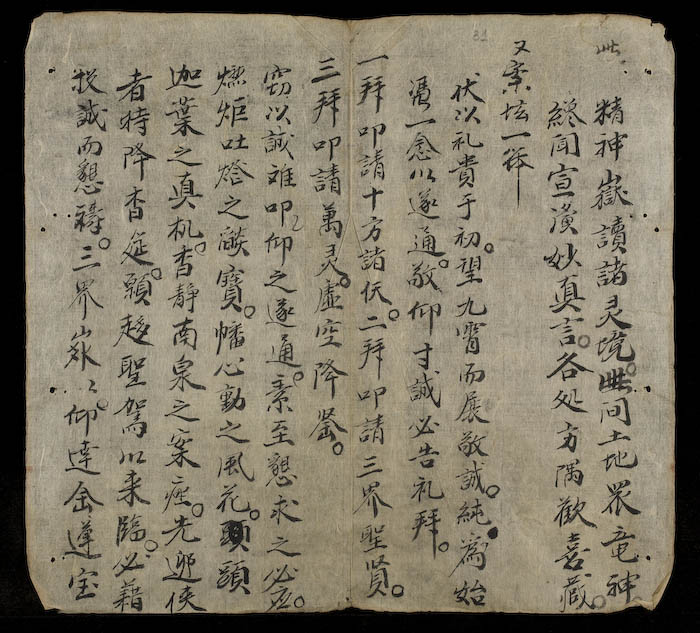 31
此
精神嶽讀諸灵境。此間土地眾竜神
終聞宣演妙真言。各处方隅歡喜藏。
又案坛一
伏以礼貴于初。望九霄而展敬誠。純為始
馮一念以遂通。敬仰寸誠必告礼拜。
一拜叩請十方諸仸。二拜叩請三界聖賢。
三拜叩請萬灵。虛空降鉴。
窃以誠难叩仰之遂通。素至懇求之必应。
燃炬吐熖之燄寳。幡心動之風花。顕
迦葉之真机。杳靜南泉之案座。先迎侠
者特降杳筵。顒趍聖駕以来臨。必藉
投誠而懇禱。三界仰逹金蓮宝